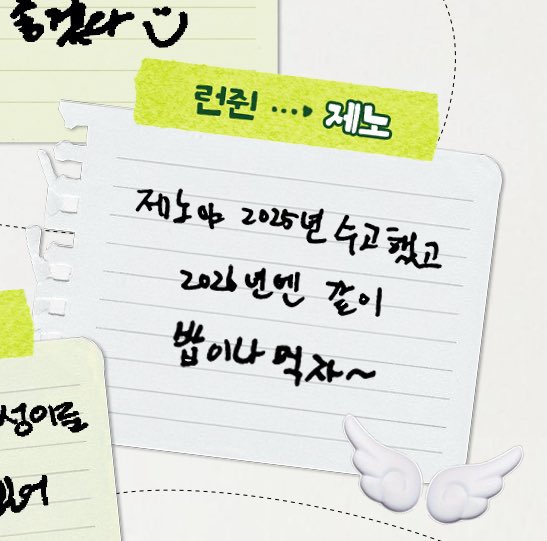 좋겠다
런쥔 ···▸ 제노
제노야 2025년 수고했고
2026년엔 같이
밥이나 먹자~
성이를
있어